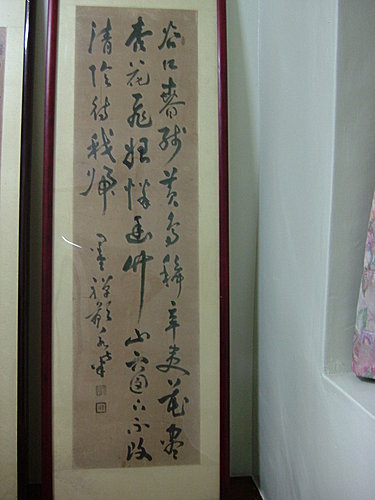 谷口春殘黃鳥稀辛夷花盡
杏花飛始憐幽竹山窗下不改
清陰待我歸